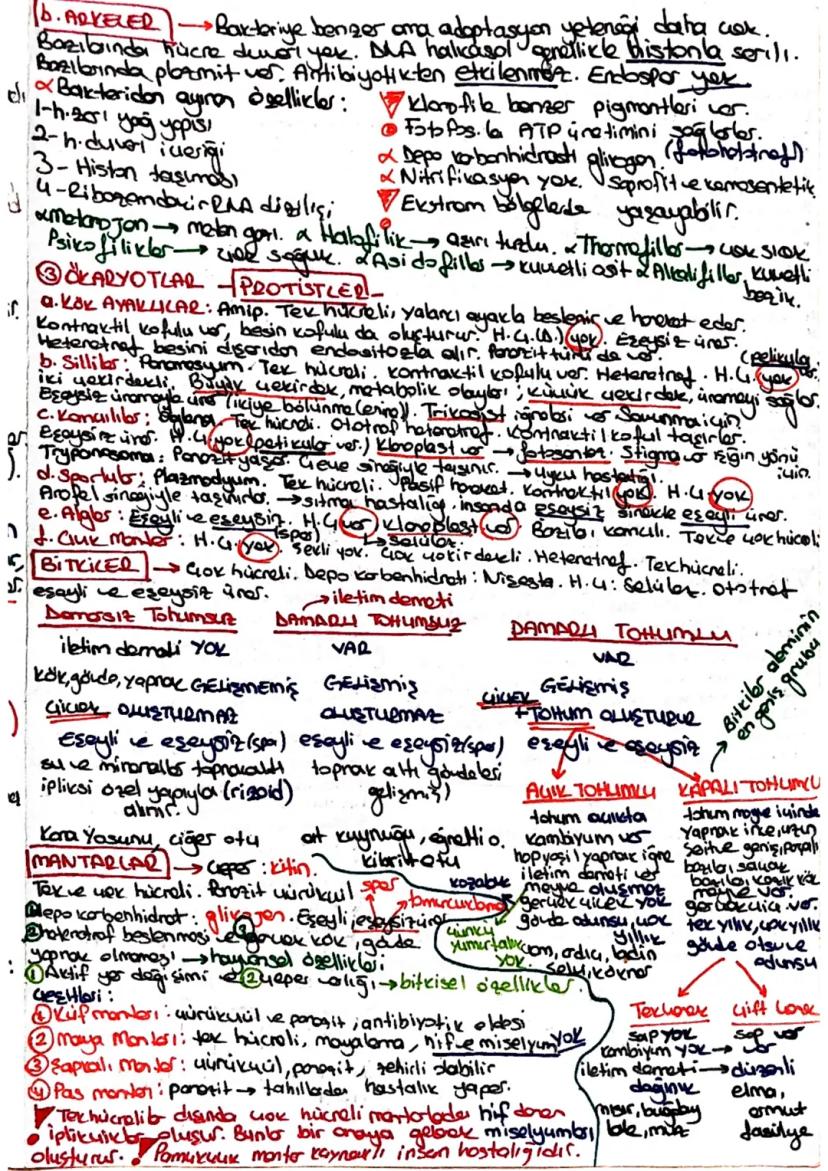 b. ARKELER → Bakteriye benzer ama adaptasyon yeteneği daha çok.
Bazılarında hücre duvarı yok. DNA halkasal genellikle histonla sarılı.
Bazılarında plazmit var. Antibiyotikten etkilenmez. Endospor yok
∝ Bakteriden ayıran özellikler:
1-h.zarı yağ yapısı
2-h.duvarı içeriği
3-Histon taşıması
4-Ribozomdaki rRNA dizilişi
Klorofile benzer pigmentleri var.
Fotofos. la ATP üretimini sağlarlar.
∝ Depo karbonhidratı glikojen. (fotoheterotrof)
∝ Nitrifikasyon yok. Saprofit ve kemosentetik
Ekstrem bölgelerde yaşayabilir.
∝ Metanojen → metan gazı. ∝ Halofilik → aşırı tuzlu. ∝ Thermofiller → çok sıcak
Psikofilikler → çok soğuk. ∝ Asidofiller → kuvvetli asit ∝ Alkalifiller. kuvvetli
bazik.
③ ÖKARYOTLAR - PROTİSTLER
a. KÖK AYAKLILAR: Amip. Tek hücreli, yalancı ayakla beslenir ve hareket eder.
Kontraktil kofulu var, besin kofulu da oluşturur. H.Ç.(D.) yok. Eşeysiz ürer.
Heterotrof besini dışarıdan endositozla alır. Parazit türü de var. (pelikula
b. Silliler: Paramesyum. Tek hücreli. Kontraktil kofulu var. Heterotrof. H.Ç. yok var.
iki çekirdekli, Büyük çekirdek, metabolik olayları, küçük çekirdek, üremeyi sağlar.
Eşeysiz üremeyle ürer (ikiye bölünme(enine)). Trikosist iğneleri var Savunma için.
c. Kamçılılar: Öglena Tek hücreli. Ototrof heterotrof. Kontraktil koful taşırlar.
Eşeysiz ürer. H.Ç yok (pelikula var.) Kloroplast var → fotosentez. Stigma var ışığın yönü
için.
Trypanosoma: Parazit yaşar. Çeçe sineğiyle taşınır. → uyku hastalığı.
d. Sporlular: Plazmodyum. Tek hücreli. Pasif hareket. Kontraktil yok. H.Ç yok
Anofel sineğiyle taşınırlar. → sıtma hastalığı. insanda eşeysiz sinekle eşeyli ürer.
e. Algler: Eşeyli ve eşeysiz. H.Ç var Kloroplast var Bazıları kamçılı. Tek ve çok hücreli
(spor) → selüloz.
f. Cıvık Mantar: H.Ç. yok. Şekli yok. Çok çekirdekli. Heterotrof. Tek hücreli.
BİTKİLER → Çok hücreli. Depo karbonhidratı: Nişasta. H.Ç: Selüloz. Ototrof
eşeyli ve eşeysiz ürer. → iletim demeti
Damarsız Tohumsuz DAMARLI TOHUMSUZ DAMARLI TOHUMLU
iletim demeti YOK VAR VAR
kök, gövde, yaprak GELİŞMEMİŞ GELİŞMİŞ GELİŞMİŞ
ÇİÇEK OLUŞTURMAZ OLUŞTURMAZ ÇİÇEK + TOHUM OLUŞTURUR
Eşeyli ve eşeysiz(spor) eşeyli ve eşeysiz(spor) eşeyli ve eşeysiz
→ Bitkiler aleminin
en geniş grubu
su ve mineraller toprakaltı
ipliksi özel yapıyla (rizoid)
alınır.
toprak altı gövdeleri
gelişmiş)
Kara yosunu, ciğer otu
at kuyruğu, eğrelti o.
kibrit otu
AÇIK TOHUMLU
tohum açıkta
kambiyum var
hep yeşil yaprak iğne
iletim demeti var
meyve oluşmaz
gerçek çiçek yok
gövde odunsu, çok
yıllık
çam, ardıç, ladin
selvi, köknar
kozalak
çünkü
yumurtalık
yok.
KAPALI TOHUMLU
tohum meyve içinde
yaprak ince, uzun
şerit ve geniş, parçalı
bazıları saçak
bazıları kazık kök
meyve var.
gerçek çiçi. var.
tek yıllık, çok yıllık
gövde otsu ve
odunsu
Tek çenek
sap yok
kambiyum yok →
iletim demeti →
dağınık
mısır, buğday
lale, muz
Çift çenek
sap var
var
düzenli
elma,
armut
fasülye
MANTARLAR → Çeper: kitin.
Tek ve çok hücreli. Parazit çürükçül spor
① Depo karbonhidrat: glikojen. Eşeyli, eşeysiz ürer tomurcuklanma
② heterotrof beslenmesi ve ③ gerçek kök, gövde
yaprak olmaması → hayvansal özellikleri
① Aktif yer değişimi ② çeper varlığı → bitkisel özellikler.
Çeşitleri:
① Küf mantarı: çürükçül ve parazit, antibiyotik eldesi
② Maya Mantarı: tek hücreli, mayalama, hif ve miselyum yok
③ Şapkalı Mantar: çürükçül, parazit, zehirli olabilir
④ Pas mantarı: parazit → tahıllarda hastalık yapar.
Tek hücreliler dışında çok hücreli mantarlarda hif denen
iplikçikler oluşur. Bunlar bir araya gelerek miselyumları
oluşturur. Pamukçuk mantar kaynaklı insan hastalığıdır.